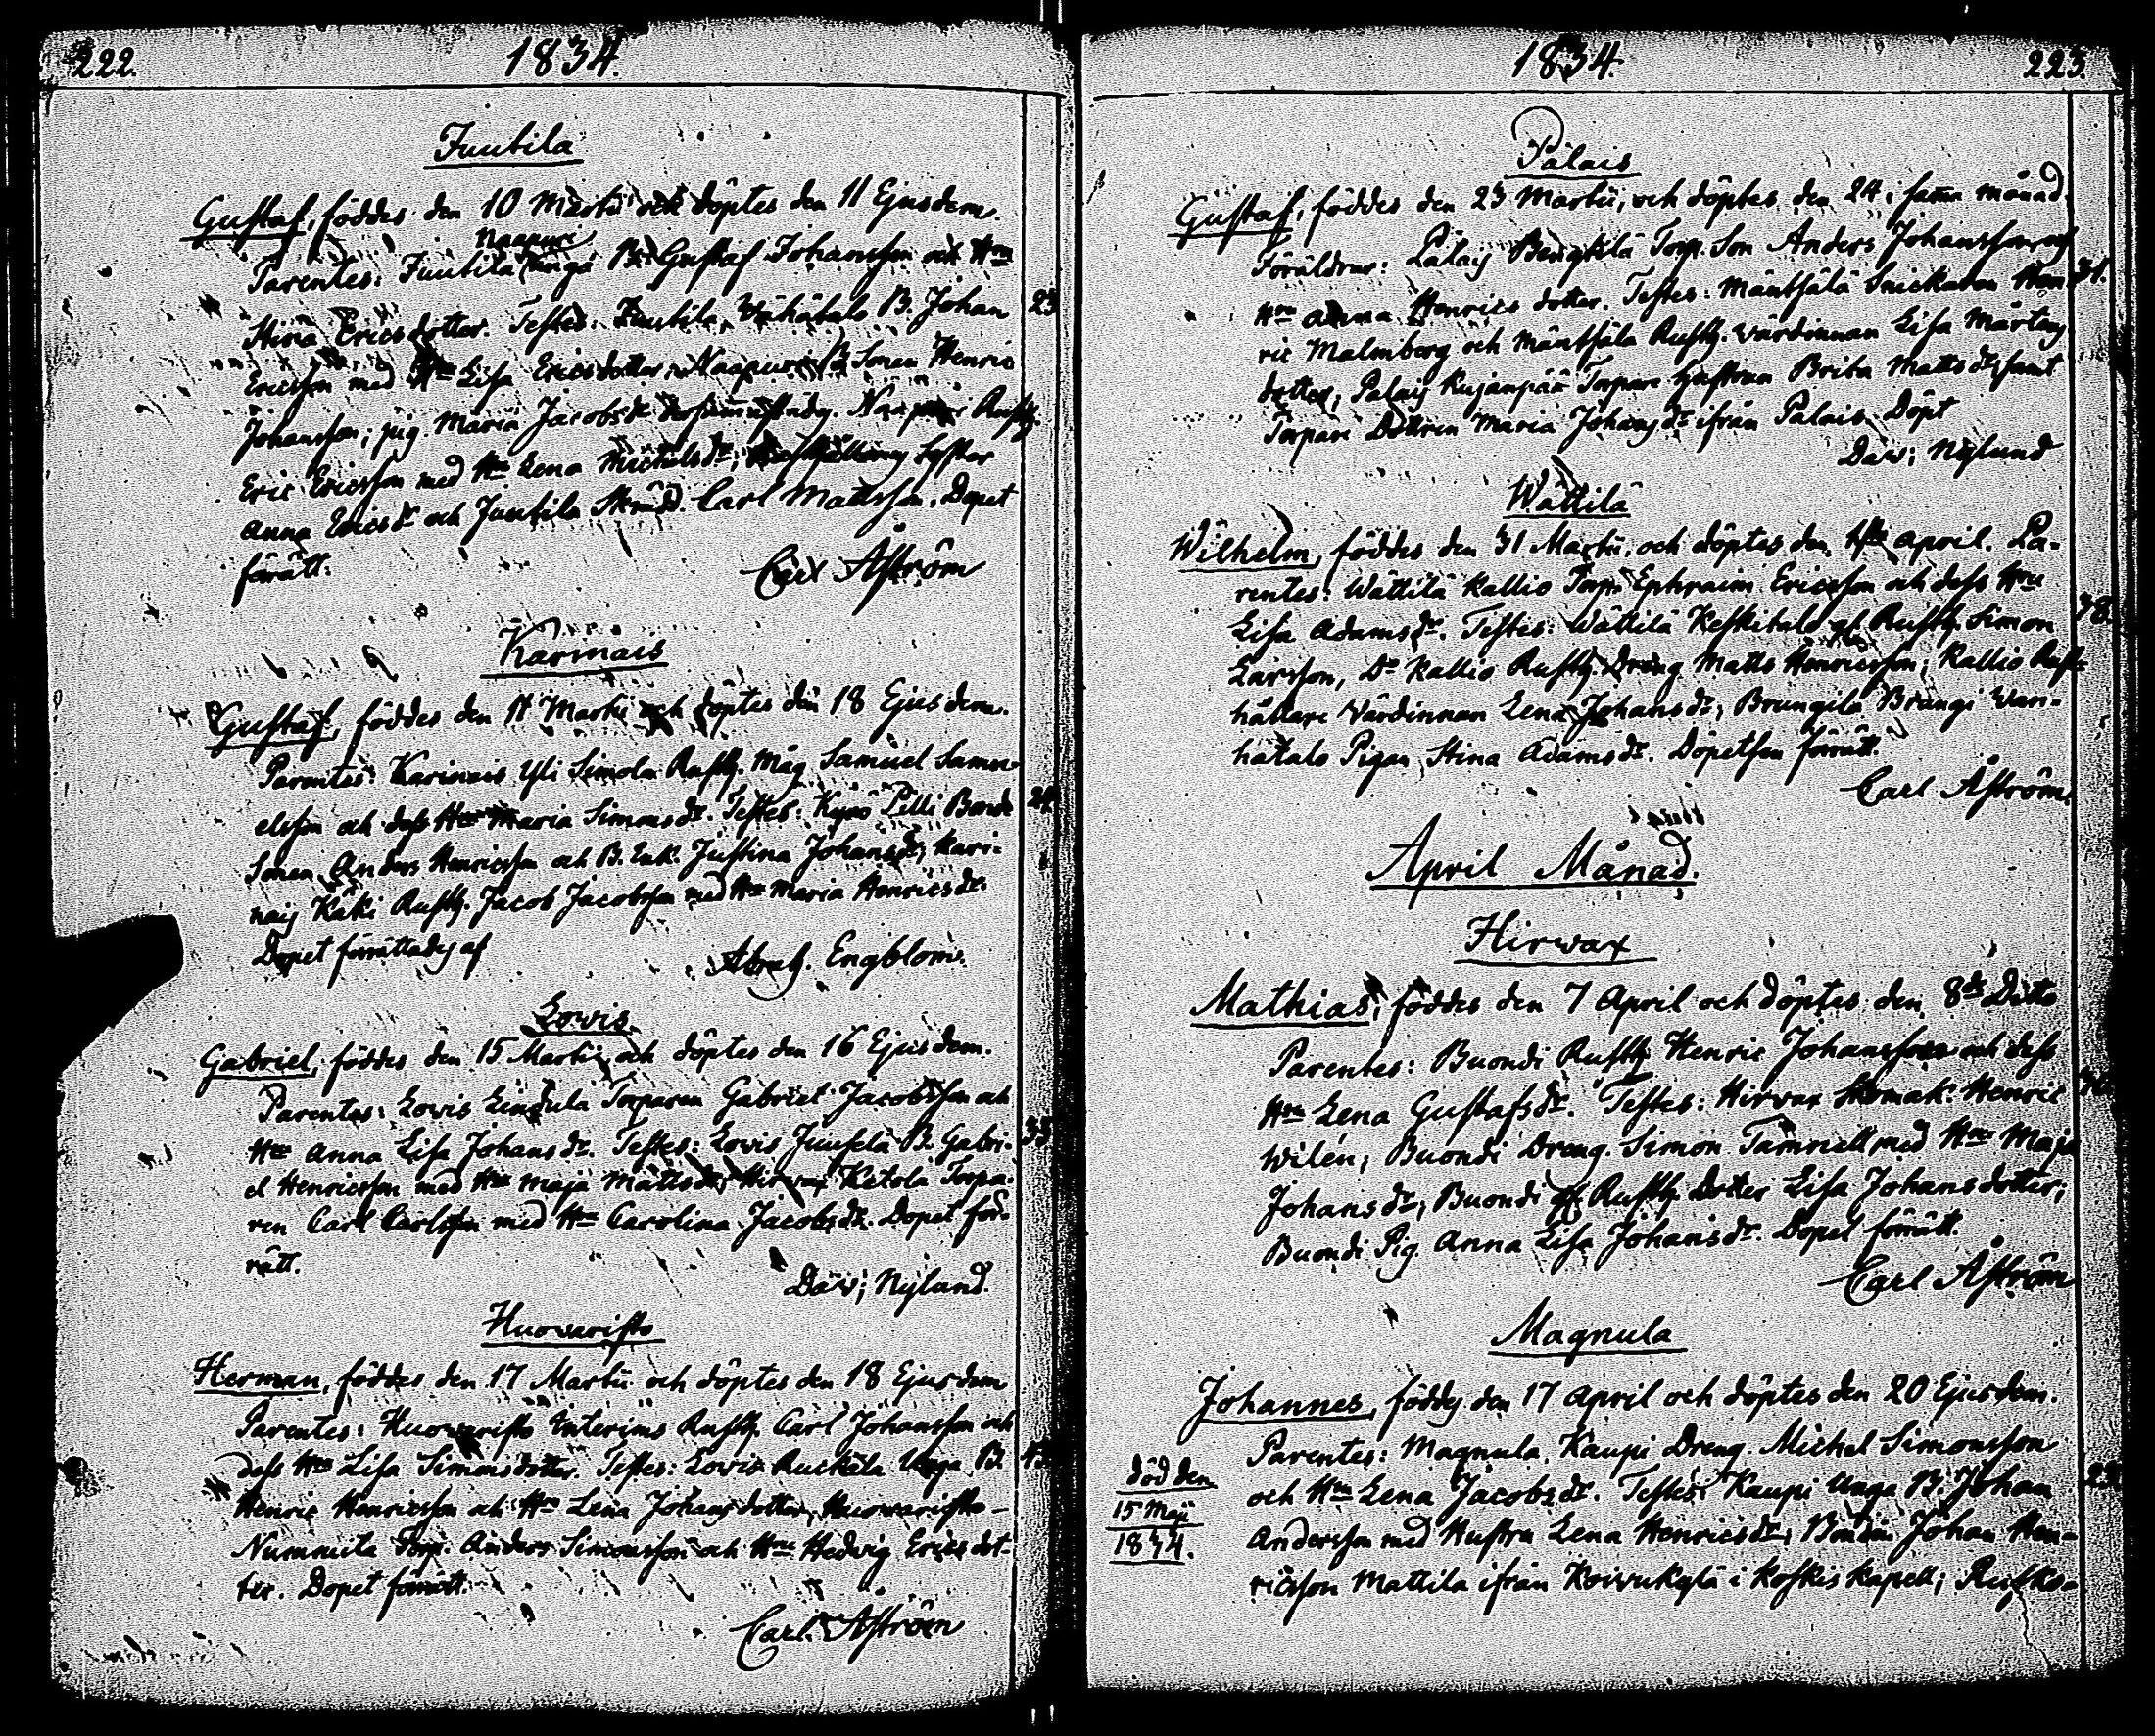 222.
1834.
Juutila
Gustaf, föddes den 10 Martii och döptes den 11 Ejusdem.
Naapuri
Parentes: Juutila Unga B. Gustaf Johansson och Hru
Stina Ericsdotter. Testes: Juutila Wähätalo B. Johan
23
Ericsson med Hru Lisa Ericsdotter, Naapuri B. Sonen Henric
Johansson; pig. Maria Jacobsdr Naapuri Rusth.
Eric Ericsson med Hru Lena Michelsdr; Syster
Anna Ericsdr och Juutila Skrädd. Carl Mattsson. Dopet
förätt.
Carl Åström
Karinais
Gustaf, föddes den 11 Martii och döptes den 18 Ejusdem.
Parentes: Karinais Yli Simola Rusth. Måg Samuel Samu-
elsson och dess Hru Maria Simonsdr. Testes: Kyrö Pilli Bonde
Sonen Anders Henricsson och B. Enk. Justina Johansdr; Kari-
nais Käki Rusth. Jacob Jacobsson med Hru Maria Henricsdr.
Dopet förrättades af
Abrah. Engblom.
Lowis
Gabriel, föddes den 15 Martii och döptes den 16 Ejusdem.
Parentes: Lowis Lindula Torparen Gabriel Jacobsson och
Hru Anna Lisa Johansdr. Testes: Lowis Juusela B. Gabri-
33
el Henricsson med Hru Maja Mattsdr; Hirwax Ketola Torpa-
ren Carl Carlsson med Hru Carolina Jacobsdr. Dopet för-
rätt.
Dav; Nylund.
Huowaristo
Herman, föddes den 17 Martii och döptes den 18 Ejusdem
Parentes: Huowaristo Interims Rusth. Carl Johansson och
dess Hru Lisa Simonsdotter. Testes: Lowis Unga B.
43
Henric Henricsson och Hru Lena Johansdotter, Huowaristo
Nummita Torp. Anders Simonsson och Hru Hedwig Ericsdot-
ter. Dopet förrätt.
Carl Åström
1834.
223.
Palais
Gustaf, föddes den 23 Martii, och döptes den 24 i samma månad.
Föräldrar: Palais Bengtilä Torp. Son Anders Johansson och
Hru Anna Henrics dotter. Testes: Mäntsälä Snickaren Hen-
31.
ric Malmborg och Mäntsälä Rusth. wärdinnan Lisa Mårtens
dotter, Palais Kujanpää Torpare hustrun Brita Mattsdr samt
Torpare Dottren Maria Johansdr ifrån Palais. Döpt
Dav; Nylund
Wättilä
Wilhelm, föddes den 31 Martii, och döptes den 1ste April. Pa-
rentes: Wättilä Kallio Torp. Ephraim Ericsson och dess Hru
Lisa Adamsdr. Testes: Wättilä Keskitalo Rusth. Simon
38.
Larsson, Do Kallio Rusth. Dreng Matts Henricsson; Kallio Rust-
hållare Värdinnan Lena Johansdr; Brungila Brungi Wan-
hatalo Pigan Stina Adamsdr. Dopetsen förrätt.
Carl Åström.
April Månad.
Hirwax
Mathias, föddes den 7 April och döptes den 8de Ditto
Parentes: Buondi Rusth. Henric Johansson och dess
Hru Lena Gustafsdr. Testes: Hirwax Skomak. Henric
Wilén; Buondi Dreng. Simon Tamnell med Hru Maja
Johansdr; Buondi Rusth. Dotter Lisa Johansdotter;
Buondi Pig. Anna Lisa Johansdr. Dopet förrätt.
Carl Åström
Magnula
Johannes, föddes den 17 April och döptes den 20 Ejusdem.
Parentes: Magnula Kaupi Dreng. Michel Simonsson
död den
15 Maji
1834.
och Hru Lena Jacobsdr. Testes: Kaupi Unga B. Johan
Andersson med Hustru Lena Henricsdr; Bonden Johan Hen-
ricsson Mattila ifrån Koivukylä i Koskis Kapell; Rusko-